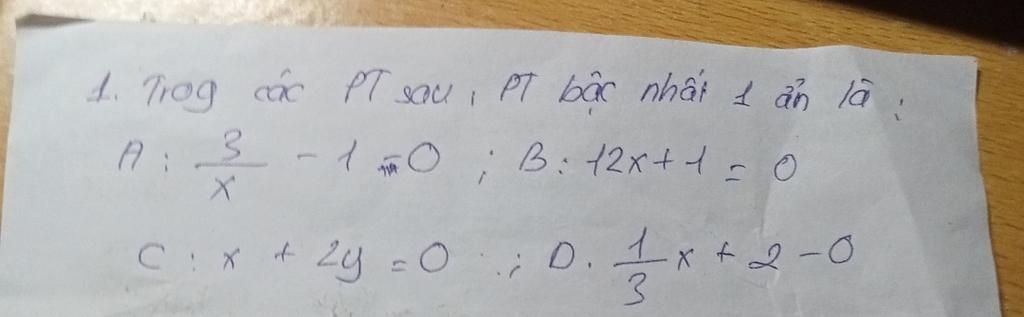 1. Trog các PT sau, PT bậc nhất 1 ẩn là:
A: 3/x - 1 = 0 ; B: 12x + 1 = 0
C: x + 2y = 0 ; D. 1/3 x + 2 - 0